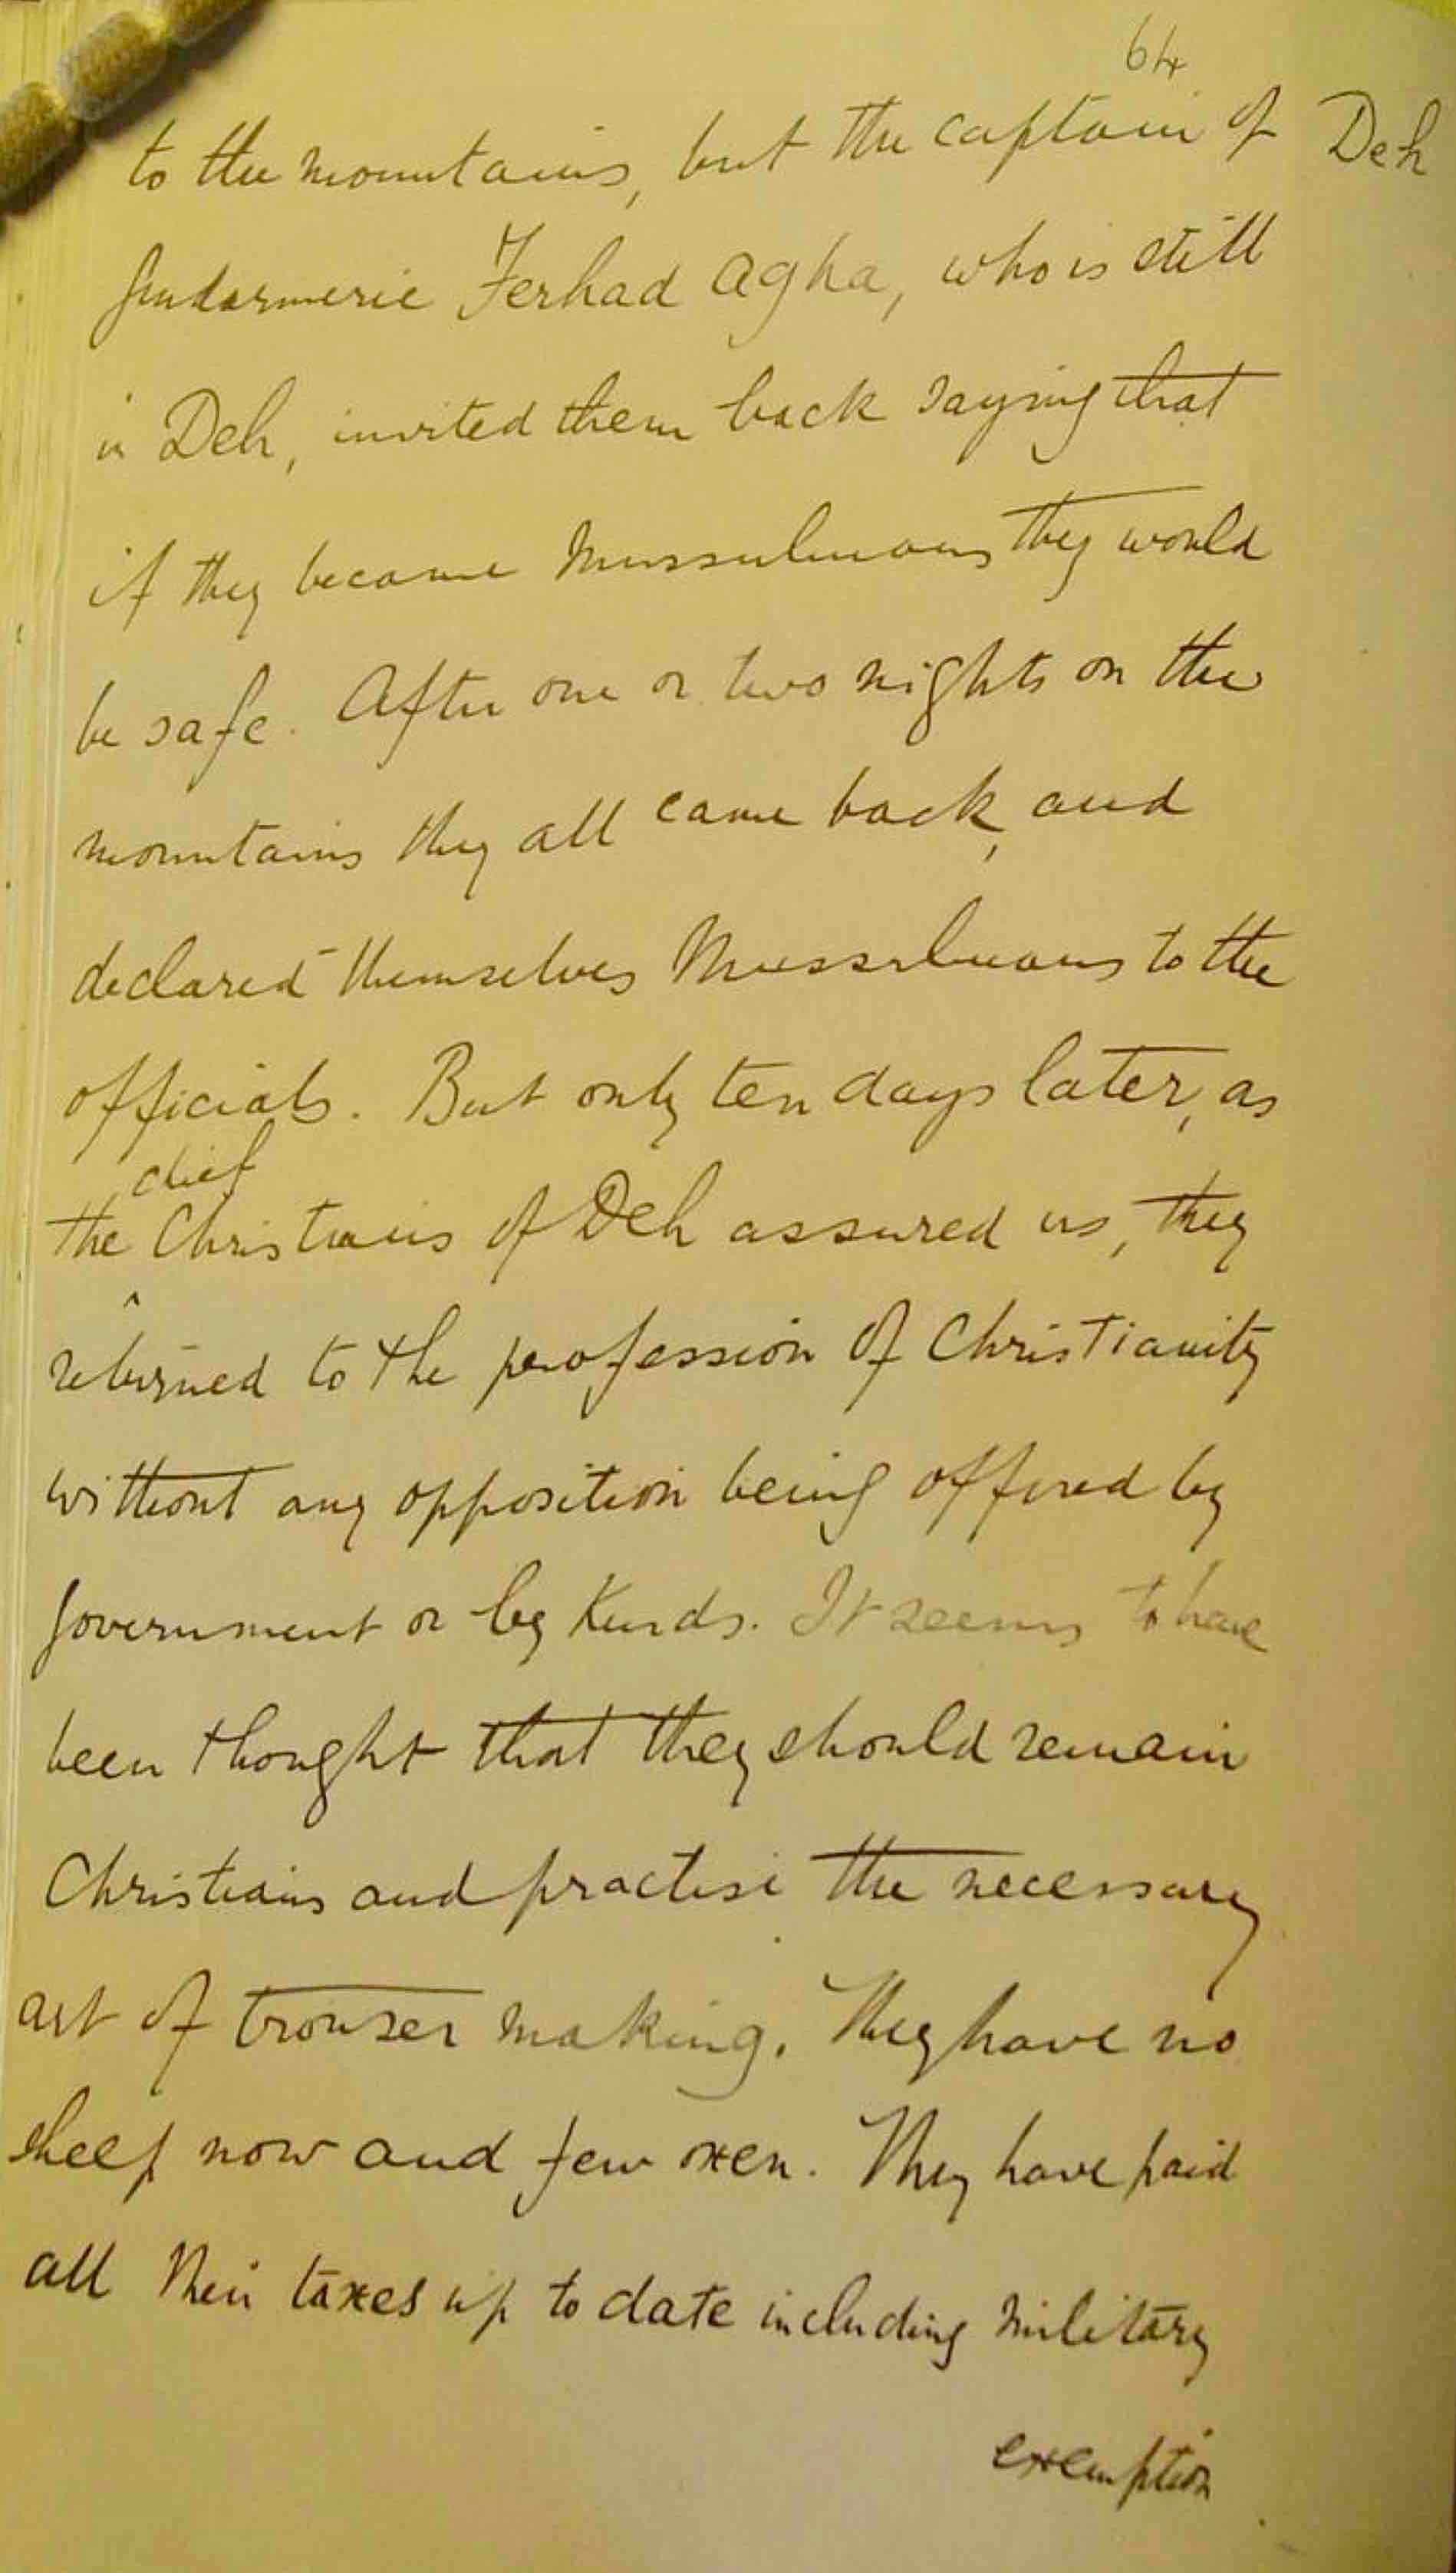 64
Deh
to the mountains, but the captain of
gendarmerie Ferhad Agha, who is still
in Deh, invited them back saying that
if they became Mussulmans they would
be safe. After one or two nights on the
mountains they all came back, and
declared themselves Mussulmans to the
officials. But only ten days later, as
chief
the ^ Christians of Deh assured us, they
returned to the profession of Christianity
without any opposition being offered by
government or by Kurds. It seems to have
been thought that they should remain
Christians and practise the necessary
art of trouser making. They have no
sheep now and few oxen. They have paid
all their taxes up to date including military
exemption